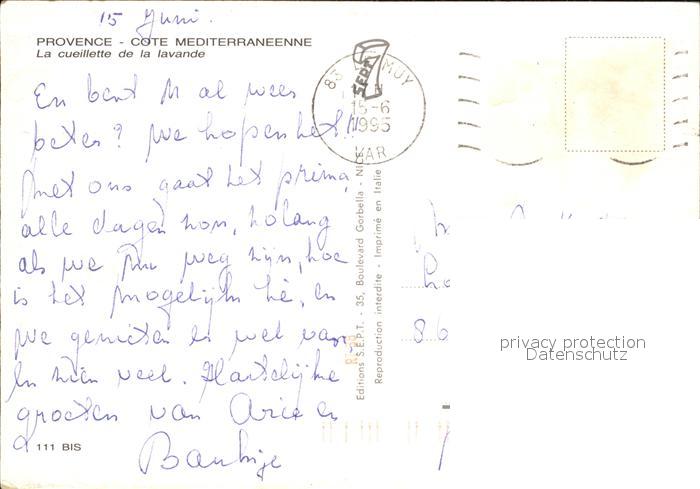 15 Juni.
PROVENCE - COTE MEDITERRANEENNE
La cueillette de la lavande
En bent U al wees
beter? We hopen het!!
Met ons gaat het prima,
alle dagen zon, zolang
als we nu weg zijn, hoe
is het mogelijk hè, en
we genieten er wel van,
en zien veel. Hartelijke
groeten van Arie en
111 BIS
83 MUY
SEPT
15-6
1995
VAR
Editions S.E.P.T. - 35, Boulevard Gorbella - NICE
Reproduction interdite - Imprimé en Italie
86
privacy protection
Datenschutz